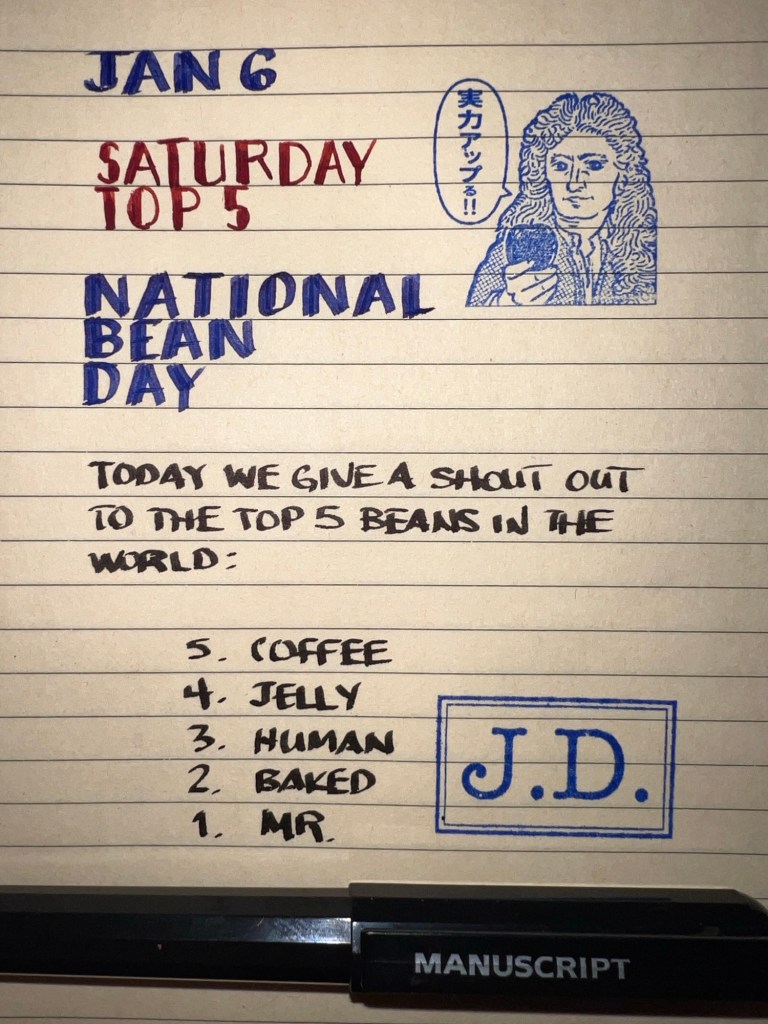 JAN 6
SATURDAY
TOP 5
実力アップる!!
NATIONAL
BEAN
DAY
TODAY WE GIVE A SHOUT OUT
TO THE TOP 5 BEANS IN THE
WORLD:
5. COFFEE
4. JELLY
3. HUMAN
2. BAKED
1. MR.
J.D.
MANUSCRIPT